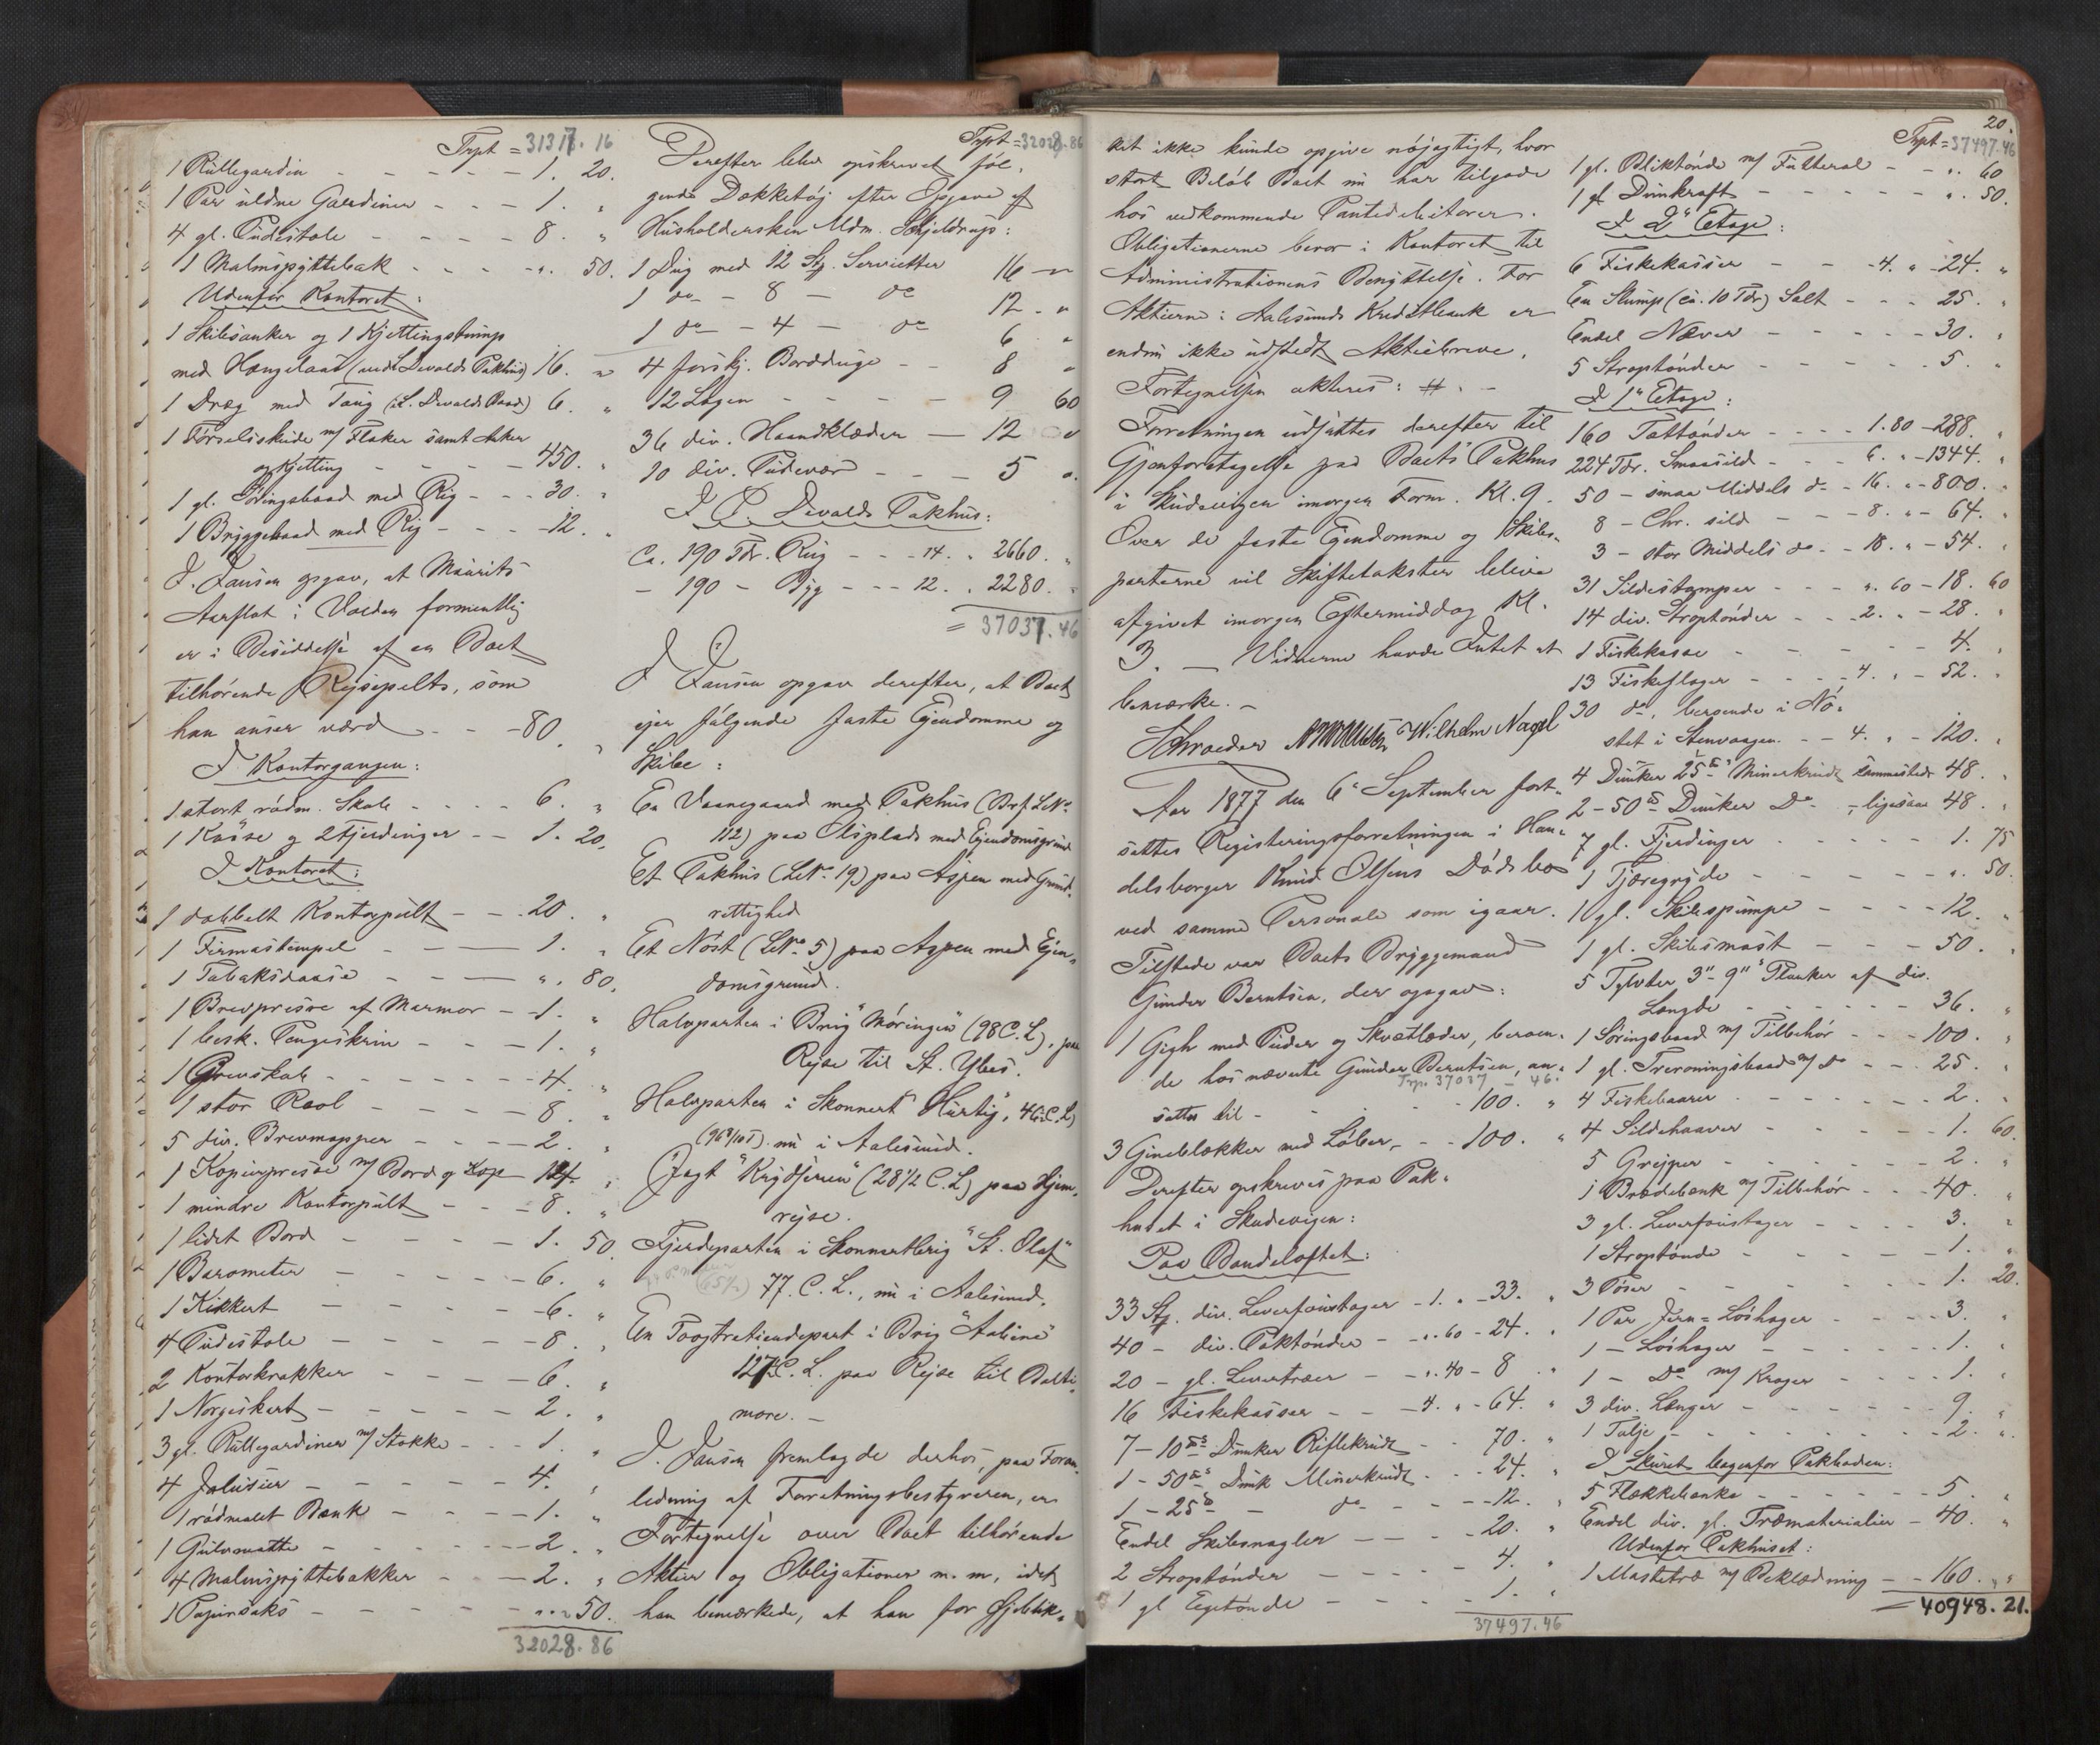 Trpt = 31317. 16
1 Rüllegardin - - - - - 1. 20.
1 Par uldne Gardiner - - - 1. "
4 gl. Pudestole - - - - 8. "
1 Malmspyttebak - - - - ". 50.
Udenfor Kontoret:
1 Skibsanker og 1 Kjettingstump
med Hængelaas (ved L. Devolds Pakhus) 16. "
1 Dræg med Toug (i L. Devolds Baad) 6. "
1 Førselsskude m/ Flaker samt Anker
og Kjetting - - - - 450. "
1 gl. Søringsbaad med Rig - - - 30. "
1 Bryggebaad med Rig - - - - 12. "
J. Jansen opgav, at Maurits
Aarflot i Volden formentlig
er i Besiddelse af en Boet
tilhørende Rejsepelts, som
han anser værd - - - 80. "
I Kontorgangen:
1 stort rødm. Skab - - - - 6. "
1 Kasse og 2 Fjerdinger - - 1. 20.
I Kontoret:
1 dobbelt Kontorpult - - - 20. "
1 Firmastempel - - - 1. "
1 Tobaksdaase - - - ". 80.
1 Brevpresse af Marmor - - 1. "
1 besk. Pengeskrin - - - 1. "
1 Brevskab - - - - - - 4. "
1 stor Reol - - - - - 8. "
5 div. Brevmapper - - - - 2. "
1 Kopierpresse m/ Bord og Kop 14. "
1 mindre Kontorpult - - - 8. "
1 lidet Bord - - - - - 1. 50.
1 Barometer - - - - - 6. "
1 Kikkert - - - - - 6. "
4 Pudestole - - - - - 8. "
2 Kontorkrakker - - - - 6. "
1 Norgeskart - - - - - 2. "
3 gl. Rullegardiner m/ Stokke - - - 1. "
4 Jalusier - - - - - 4. "
1 rødmalet Bænk - - - - 1. "
1 Gulvmatte - - - - - 2. "
4 Malmspyttebakker - - - 2. "
1 Papirsaks - - - - - ". 50.
32028. 86
Trpt = 32028. 86
Derefter blev opskrevet føl-
gende Dækketøj efter Opgave af
Husholdersken Mdm. Schjeldrup:
1 Dug med 12 Stk. Servietter 16 - "
1 do - 8 - do 12 - "
1 do - 4 - do 6 "
4 forskj. Bordduge - - 8 "
12 Lagen - - - - - 9 60
36 div. Haandklæder - 12 "
10 div. Pudevær - - - 5 ".
I P. Devolds Pakhus:
Ca. 190 Tdr. Rug - - - 14. " 2660. "
- 190 - Byg - - - 12. " 2280. "
= 37037. 46
J. Jansen opgav derefter, at Boet
ejer følgende faste Ejendomme og
Skibe:
En Vaanegaard med Pakhus (Brf. LNo
112) paa Olsplads med Ejendomsgrund
Et Pakhus (LNo 19) paa Aspen med Grund-
rettighed
Et Nøst (LNo 5) paa Aspen med Ejen-
domsgrund.
Halvparten i Brig "Møringen" (98 C. L), paa
Rejse til St. Ybes.
Halvparten i Skonnert "Hurtig", 46 C. L)
nu i Aalesund.
Jagt "Krydseren" (28 1/2 C. L) paa Hjem-
rejse.
Fjerdeparten i Skonnertbrig "St. Olaf"
77. C. L., nu i Aalesund.
En Toogtretiendepart i Brig "Aaline"
127 C. L. paa Rejse til Balti-
more. -
J. Jansen fremlagde derhos, paa Foran-
ledning af Forretningsbestyreren, en
Fortegnelse over Boet tilhørende
Aktier og Obligationer m. m, idet
han bemærkede, at han for Øjeblik-
20.
ket ikke kunde opgive nøjagtigt, hvor
stort Beløb Boet nu har tilgode
hos vedkommende Pantedebitorer.
Obligationerne beror i Kontoret til
Administrationens Benyttelse. For
Aktierne i Aalesunds Kreditbank er
endnu ikke udstedt Aktiebreve.
Fortegnelsen akteres: #. -
Forretningen udsattes derefter til
Gjenforetagelse paa Boets Pakhus
i Skudevigen imorgen Form. Kl. 9.
Over de faste Ejendomme og Skibs-
parterne vil Skiftetakster blive
afgivet imorgen Eftermiddag Kl.
3. - Vidnerne havde Intet at
bemærke. -
Schroeder Wilhelm Nagel
Aar 1877 den 6te September fort-
sattes Registeringsforretningen i Han-
delsborger Knud Olsens Dødsbo
ved samme Personale som igaar.
Tilstede var Boets Bryggemand
Gunder Berntsen, der opgav:
1 Gigh med Puder og Skvætlæder, beroen-
de hos nævnte Gunder Berntsen, an-
Trp. 37037 - 46.
sattes til - - - - - 100. "
3 Gineblokker med Løber - - 100. "
Derefter opskreves paa Pak-
huset i Skudevigen:
Paa Bandeloftet:
33 Stk. div. Leverfoustager - 1. " - 33. "
40 - div. Paktønder - - ". 60 - 24. "
20 - gl. Levertræer - - ". 40 - 8 "
16 Fiskekasser - - - 4. " - 64. "
7 - 10 ℔s Dunker Riflekrudt - - 70. "
1 - 50 ℔s Dunk Minerkrudt - - - 24. "
1 - 25 ℔ - do - - - - 12. "
Endel Skibsnagler - - - 20. "
2 Stroptønder - - - - 4. "
1 gl Egetønde - - - - 1. "
37497. 46
Trpt = 37497. 46
1 gl. Bliktønde m/ Futteral - - ". 60
1 gl Dunkraft - - - - - - ". 50.
I 2den Etage:
6 Fiskekasser - - - 4. " - 24. "
En Slump (ca. 10 Tdr) Salt - - - 25. "
Endel Næver - - - - - 30. "
5 Stroptønder - - - - - 5. "
I 1ste Etage:
160 Tøttønder - - - - 1. 80 - 288. "
224 Tdr. Smaasild - - - 6. " - 1344. "
50 - smaa Middels do - - 16. " - 800. "
8 - Chr. sild - - - 8. " - 64. "
3 - stor Middels do - - 18. " - 54. "
31 Sildestamper - - - ". 60 - 18. 60
14 div. Stroptønder - - - 2. " - 28. "
1 Fiskekasse - - - - - 4. "
13 Fiskeflager - - - - 4. " - 52. "
30 do, beroende i Nø-
stet i Stenvaagen - - 4. " - 120. "
4 Dunker 25 ℔s Minerkrudt sammesteds 48. "
2 - 50 ℔s Dunker Do - ligesaa 48. "
7 gl. Fjerdinger - - - - 1. 75
1 Tjæregryde - - - - - ". 50.
1 gl. Skibspumpe - - - - 12. "
1 gl. Skibsmast - - - - 50. "
5 Tylvter 3" - 9" Planker af div.
Længde - - - - - - 36. "
1 Søringsbaad m/ Tilbehør - - - 100. "
1 gl. Treroningsbaad m/ Do - - - 25. "
4 Fiskebaarer - - - - - - 2. "
4 Sildehaaver - - - - - 1. 60.
5 Grejper - - - - - - 2. "
1 Brødebænk m/ Tilbehør - - - 40. "
3 gl. Leverfoustager - - - - 3. "
1 Stroptønde - - - - - 1. "
3 Poser - - - - - - 1. 20.
1 Par Jern-Løshager - - - - 3. "
1 - Løshager - - - - - 1. "
1 - Do m/ Krager - - - - 1. "
3 div. Længer - - - - - 9. "
1 Talje - - - - - - 2. "
I Skuret bagenfor Pakboden:
5 Flækkebænke - - - - - 5. "
Endel div. gl. Træmaterialier - 40. "
Udenfor Pakhuset:
1 Mastetræ m/ Beklædning - - 160. "
= 40948. 21.